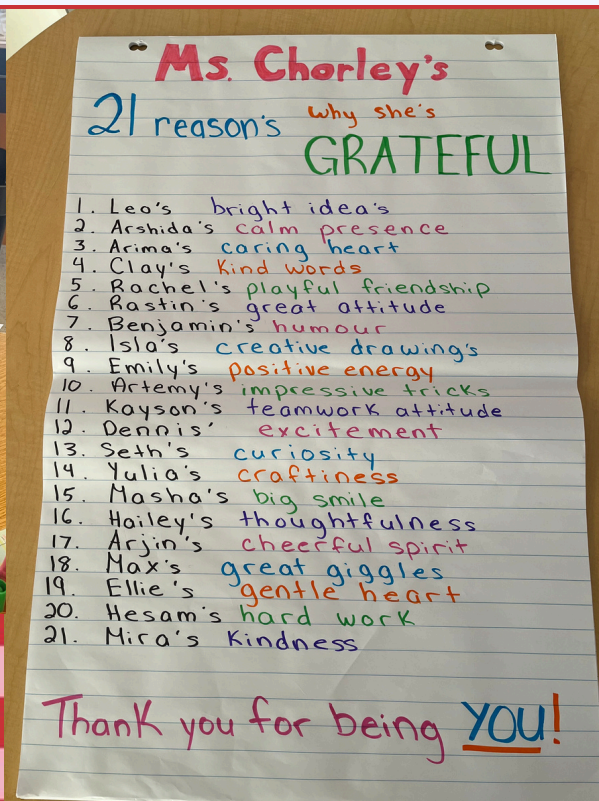 Ms. Chorley's
21 reason's why she's
GRATEFUL
1. Leo's bright idea's
2. Arshida's calm presence
3. Arima's caring heart
4. Clay's Kind words
5. Rachel's playful friendship
6. Rastin's great attitude
7. Benjamin's humour
8. Isla's creative drawing's
9. Emily's positive energy
10. Artemy's impressive tricks
11. Kayson's teamwork attitude
12. Dennis' excitement
13. Seth's curiosity
14. Yulia's craftiness
15. Masha's big smile
16. Hailey's thoughtfulness
17. Arjin's cheerful spirit
18. Max's great giggles
19. Ellie's gentle heart
20. Hesam's hard work
21. Mira's Kindness
Thank you for being YOU!